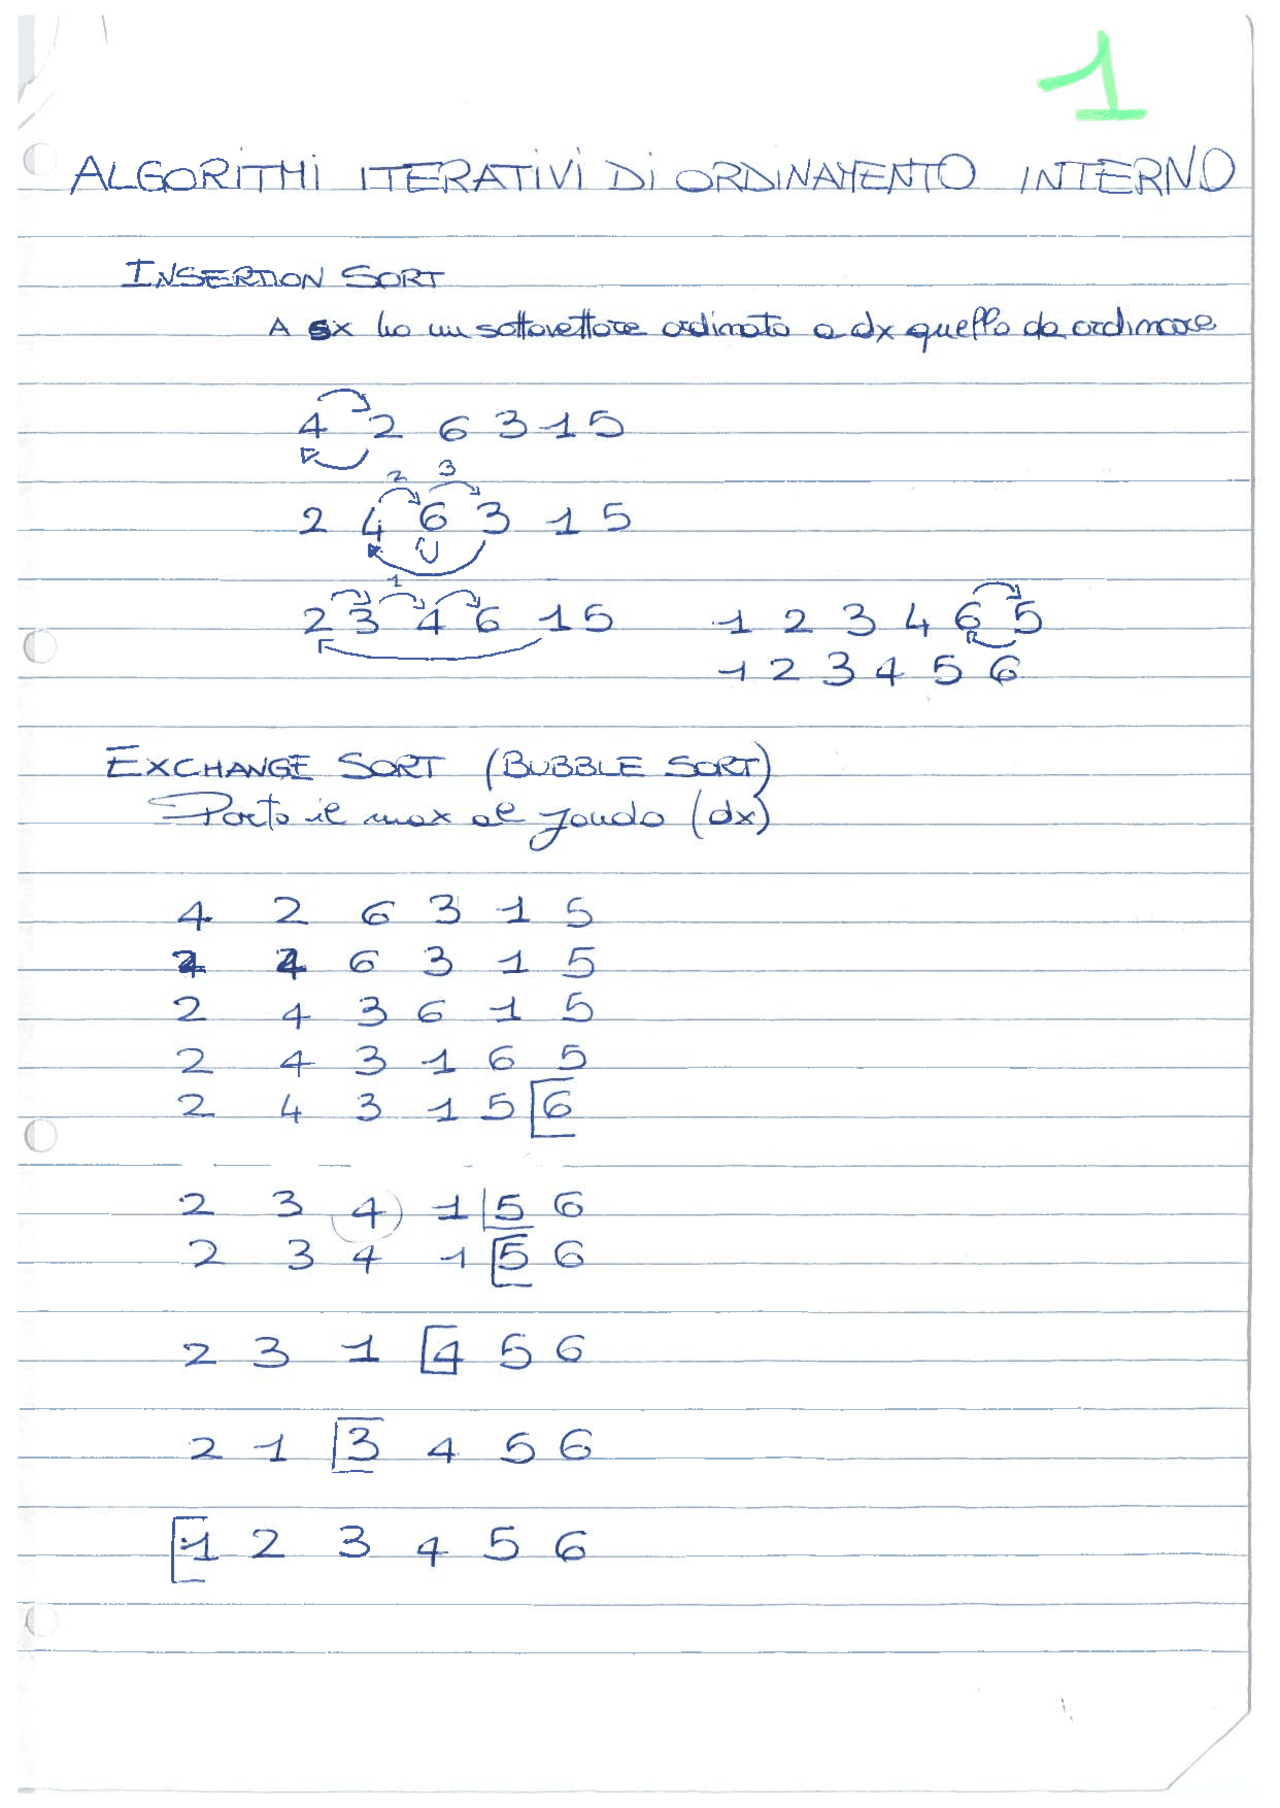 1
ALGORITMI ITERATIVI DI ORDINAMENTO INTERNO
INSERTION SORT
A sx ho un sottovettore ordinato a dx quello da ordinare
4 2 6 3 1 5
2 3
2 4 6 3 1 5
1
2 3 4 6 1 5 1 2 3 4 6 5
1 2 3 4 5 6
EXCHANGE SORT (BUBBLE SORT)
Porto il max al fondo (dx)
4 2 6 3 1 5
2 4 6 3 1 5
2 4 3 6 1 5
2 4 3 1 6 5
2 4 3 1 5 6
2 3 4 1 5 6
2 3 4 1 5 6
2 3 1 4 5 6
2 1 3 4 5 6
1 2 3 4 5 6